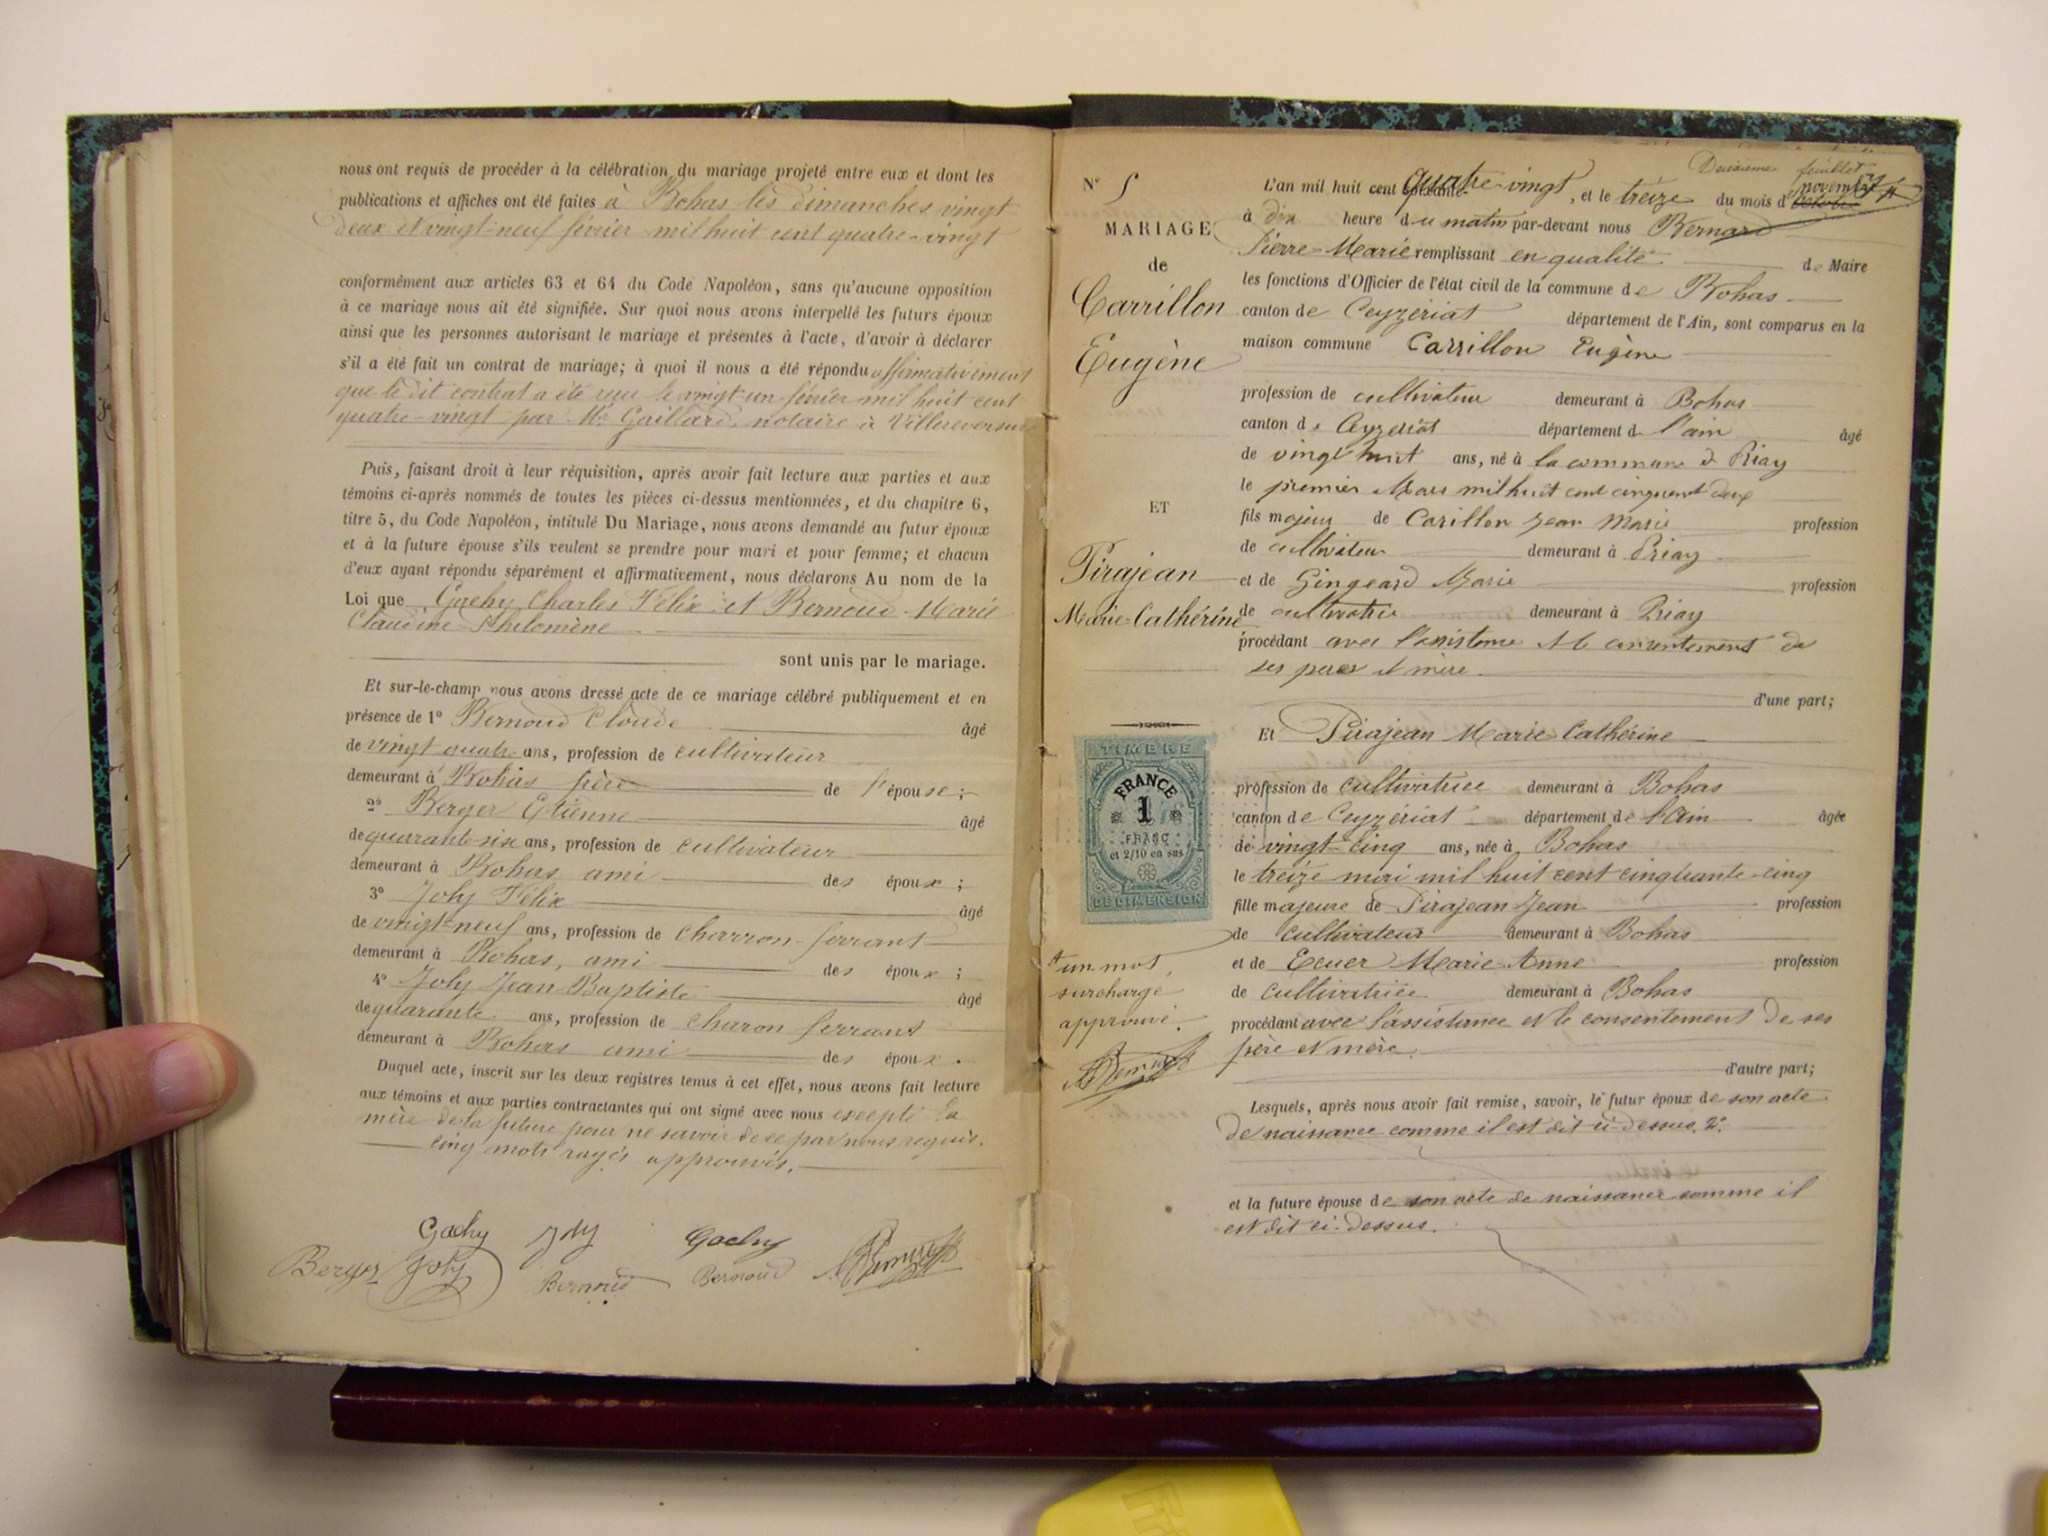 nous ont requis de procéder à la célébration du mariage projeté entre eux et dont les
publications et affiches ont été faites à Bohas les dimanches vingt
deux et vingt-neuf février mil huit cent quatre-vingt
conformément aux articles 63 et 64 du Code Napoléon, sans qu'aucune opposition
à ce mariage nous ait été signifiée. Sur quoi nous avons interpellé les futurs époux
ainsi que les personnes autorisant le mariage et présentes à l'acte, d'avoir à déclarer
s'il a été fait un contrat de mariage; à quoi il nous a été répondu affirmativement
que le dit contrat a été reçu le vingt-un février mil huit cent
quatre-vingt par Me Gaillard, notaire à Villereversure
Puis, faisant droit à leur réquisition, après avoir fait lecture aux parties et aux
témoins ci-après nommés de toutes les pièces ci-dessus mentionnées, et du chapitre 6,
titre 5, du Code Napoléon, intitulé Du Mariage, nous avons demandé au futur époux
et à la future épouse s'ils veulent se prendre pour mari et pour femme; et chacun
d'eux ayant répondu séparément et affirmativement, nous déclarons Au nom de la
Loi que Gachy Charles Félix et Bernoud Marie
Claudine Philomène
sont unis par le mariage.
Et sur-le-champ nous avons dressé acte de ce mariage célébré publiquement et en
présence de 1° Bernoud Claude âgé
de vingt quatre ans, profession de cultivateur
demeurant à Bohas frère de l'épouse;
2° Berger Etienne âgé
de quarante-six ans, profession de cultivateur
demeurant à Bohas ami des époux;
3° Joly Félix âgé
de vingt-neuf ans, profession de charron-ferrant
demeurant à Bohas, ami des époux;
4° Joly Jean-Baptiste âgé
de quarante ans, profession de charon ferrant
demeurant à Bohas ami des époux.
Duquel acte, inscrit sur les deux registres tenus à cet effet, nous avons fait lecture
aux témoins et aux parties contractantes qui ont signé avec nous excepté la
mère de la future pour ne savoir de ce par nous requis.
cinq mots rayés approuvés.
Gachy Joly Gachy
Berger Joly Bernoud Bernoud
N° 5
MARIAGE
de
Carrillon
Eugène
ET
Pirajean
Marie-Cathérine
TIMBRE
FRANCE
1
FRANC
et 2/10 en sus
DE DIMENSION
un mot
surchargé
approuvé.
Deuxième feuillet
L'an mil huit cent quatre-vingt, et le treize du mois d novembre
à dix heure du matin par-devant nous Bernard
Pierre-Marie remplissant en qualité de Maire
les fonctions d'Officier de l'état civil de la commune de Bohas
canton de Ceyzériat département de l'Ain, sont comparus en la
maison commune Carrillon Eugène
profession de cultivateur demeurant à Bohas
canton de Ceyzeriat département de l'ain âgé
de vingt huit ans, né à la commune de Priay
le premier Mars mil huit cent cinquante deux
fils majeur de Carillon Jean Marie profession
de cultivateur demeurant à Priay
et de Gingeard Marie profession
de cultivatrice demeurant à Priay
procédant avec l'assistance et le consentement de
ses père et mère.
d'une part;
Et Pirajean Marie-Cathérine
profession de cultivatrice demeurant à Bohas
canton de Ceyzériat département de l'Ain âgée
de vingt-cinq ans, née à Bohas
le treize mai mil huit cent cinquante-cinq
fille majeure de Pirajean Jean profession
de cultivateur demeurant à Bohas
et de Ecuer Marie-Anne profession
de cultivatrice demeurant à Bohas
procédant avec l'assistance et le consentement de ses
père et mère.
d'autre part;
Lesquels, après nous avoir fait remise, savoir, le futur époux de son acte
de naissance comme il est dit ci-dessus. 2°.
et la future épouse de son acte de naissance comme il
est dit ci-dessus.